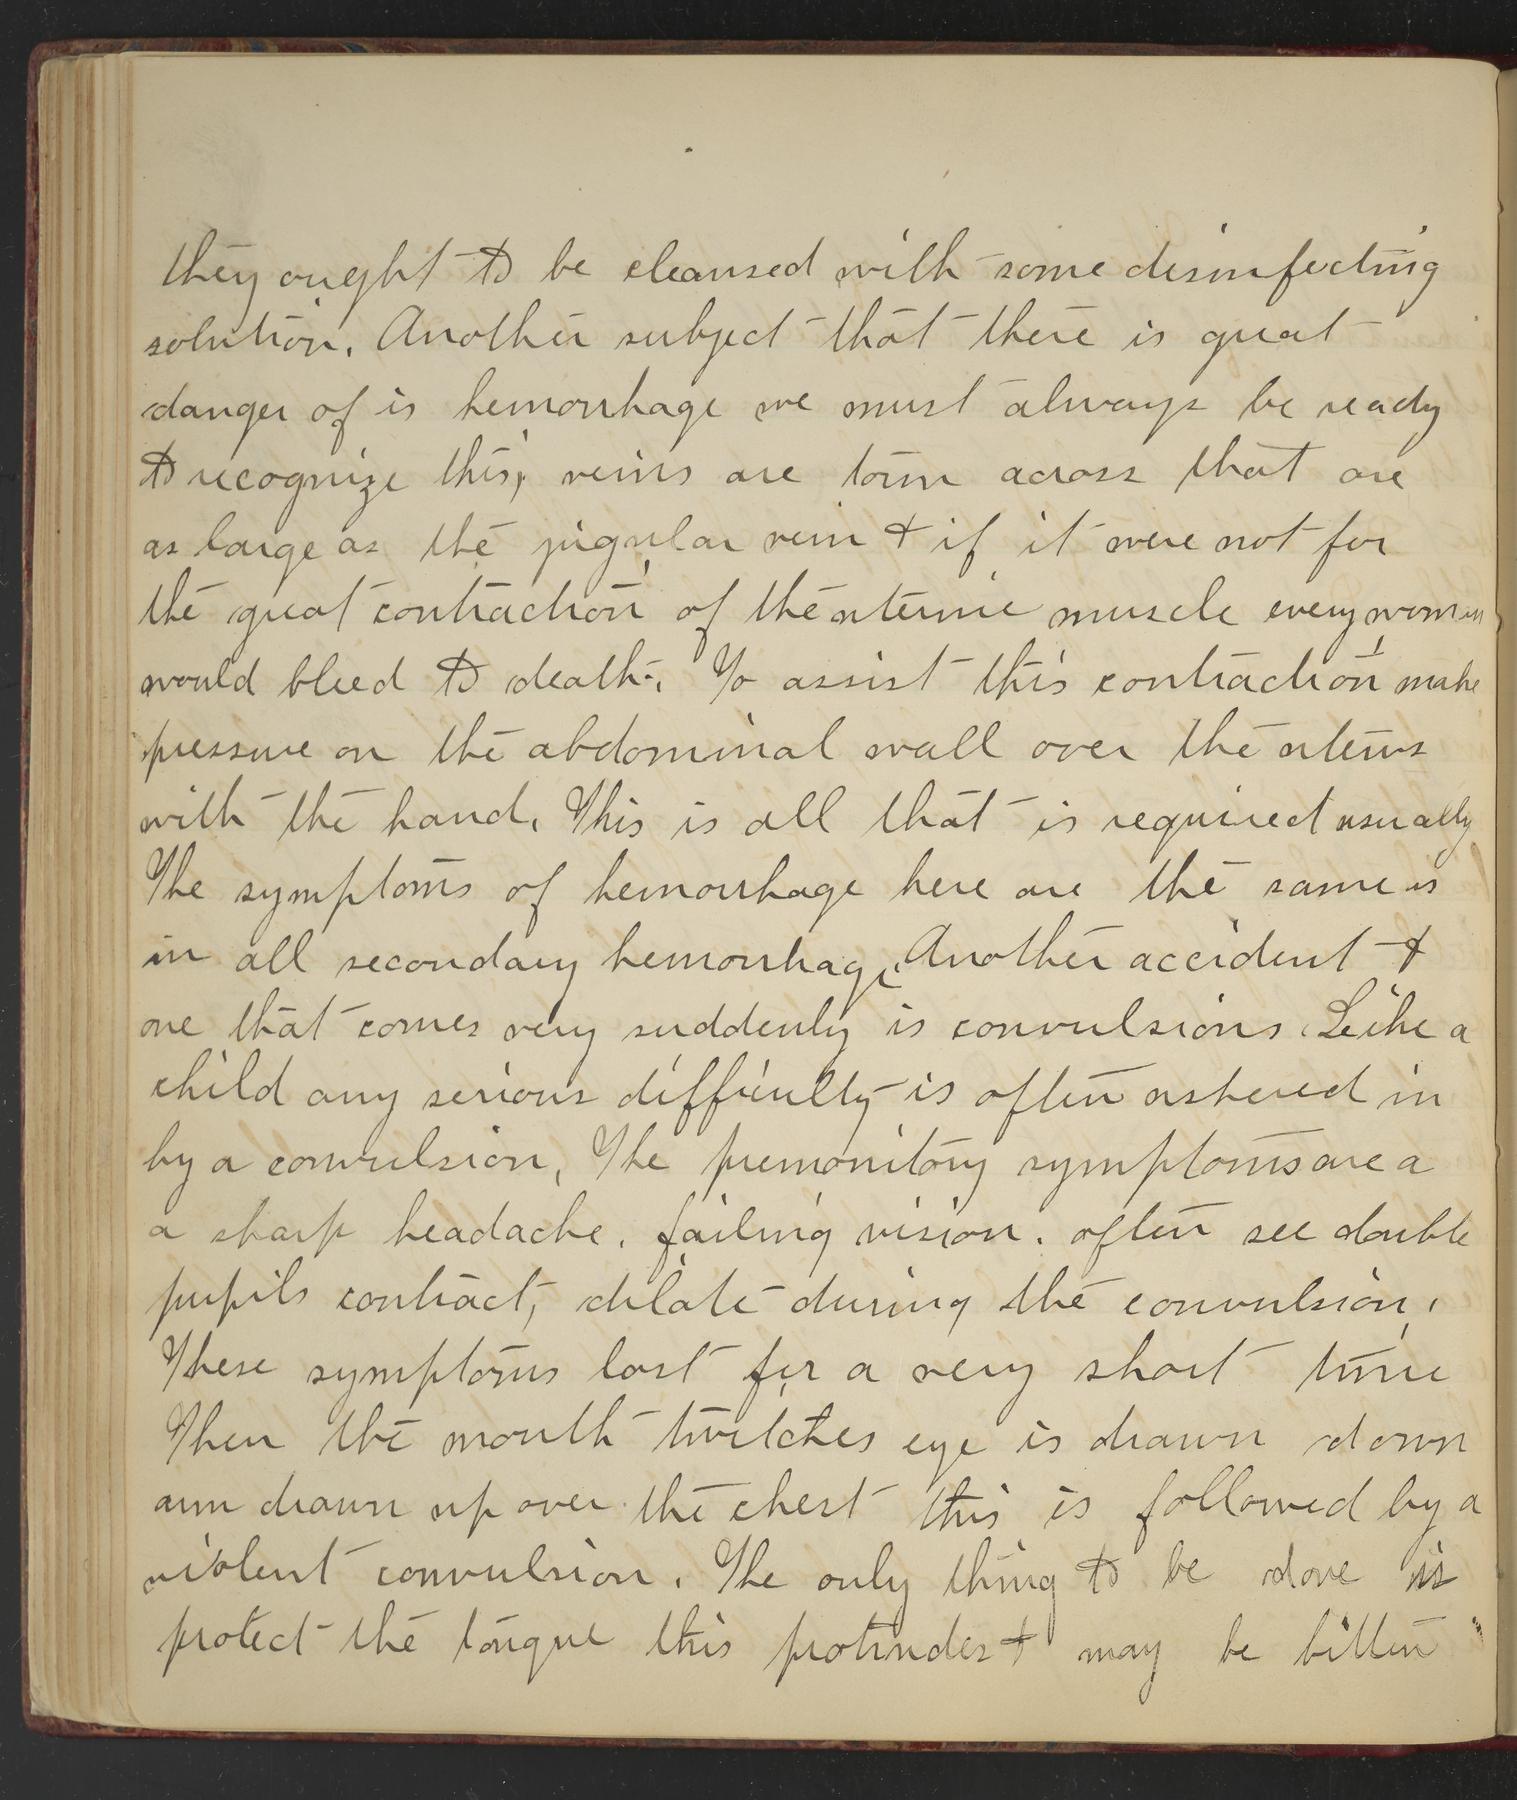 they ought to be cleansed with some disinfecting
solution. Another subject that there is great
danger of is hemorrhage we must always be ready
to recognize this; veins are torn across that are
as large as the jugular vein & if it were not for
the great contraction of the uterine muscle every woman
would bleed to death. To assist this contraction make
pressure on the abdominal wall over the uterus
with the hand. This is all that is required usually
The symptoms of hemorrhage here are the same is
in all secondary hemorrhage. Another accident &
one that comes very suddenly is convulsions. Like a
child any serious difficulty is often ushered in
by a convulsion. The premonitory symptoms are a
a sharp headache. failing vision. often see double
pupils contract, dilate during the convulsion.
These symptoms last for a very short time
Then the mouth twitches eye is drawn down
arm drawn up over the chest this is followed by a
violent convulsion. The only thing to be done is
protect the tongue this protrudes & may be bitten